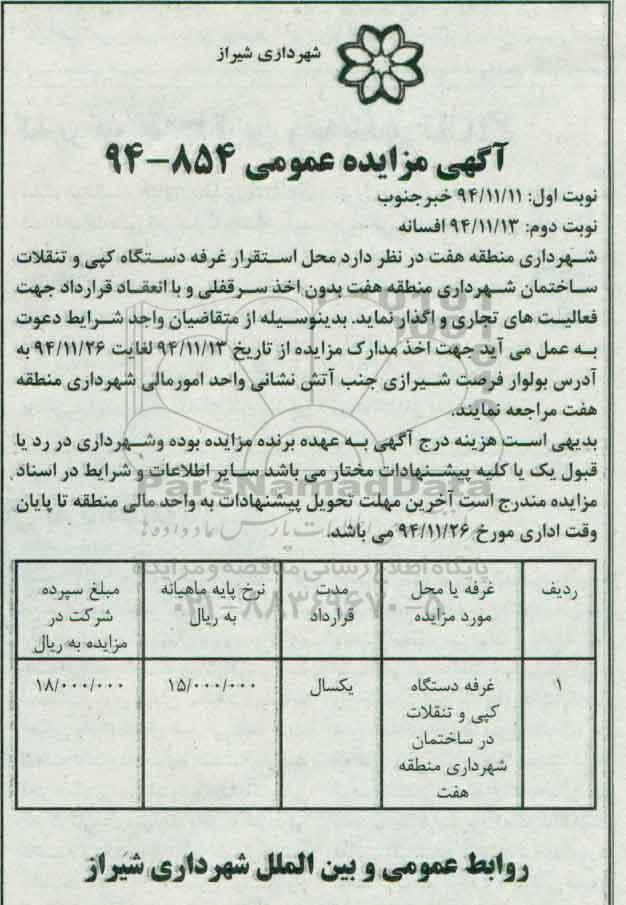 شهرداری شیراز
آگهی مزایده عمومی ۸۵۴-۹۴
نوبت اول: ۹۴/۱۱/۱۱ خبرجنوب
نوبت دوم: ۹۴/۱۱/۱۳ افسانه
شهرداری منطقه هفت در نظر دارد محل استقرار غرفه دستگاه کپی و تنقلات
ساختمان شهرداری منطقه هفت بدون اخذ سرقفلی و با انعقاد قرارداد جهت
فعالیت های تجاری و اگذار نماید. بدینوسیله از متقاضیان واجد شرایط دعوت
به عمل می آید جهت اخذ مدارک مزایده از تاریخ ۹۴/۱۱/۱۳ لغایت ۹۴/۱۱/۲۶ به
آدرس بولوار فرصت شیرازی جنب آتش نشانی واحد امورمالی شهرداری منطقه
هفت مراجعه نمایند.
بدیهی است هزینه درج آگهی به عهده برنده مزایده بوده وشهرداری در رد یا
قبول یک یا کلیه پیشنهادات مختار می باشد سایر اطلاعات و شرایط در اسناد
مزایده مندرج است آخرین مهلت تحویل پیشنهادات به واحد مالی منطقه تا پایان
وقت اداری مورخ ۹۴/۱۱/۲۶ می باشد.
ParsNamadData
پایگاه اطلاع رسانی مناقصه و مزایده
۰۲۱-۸۸۳۴۹۶۷۰-۵
ردیف
غرفه یا محل
مورد مزایده
مدت
قرارداد
نرخ پایه ماهیانه
به ریال
مبلغ سپرده
شرکت در
مزایده به ریال
۱
غرفه دستگاه
کپی و تنقلات
در ساختمان
شهرداری منطقه
هفت
یکسال
۱۵/۰۰۰/۰۰۰
۱۸/۰۰۰/۰۰۰
روابط عمومی و بین الملل شهرداری شیراز